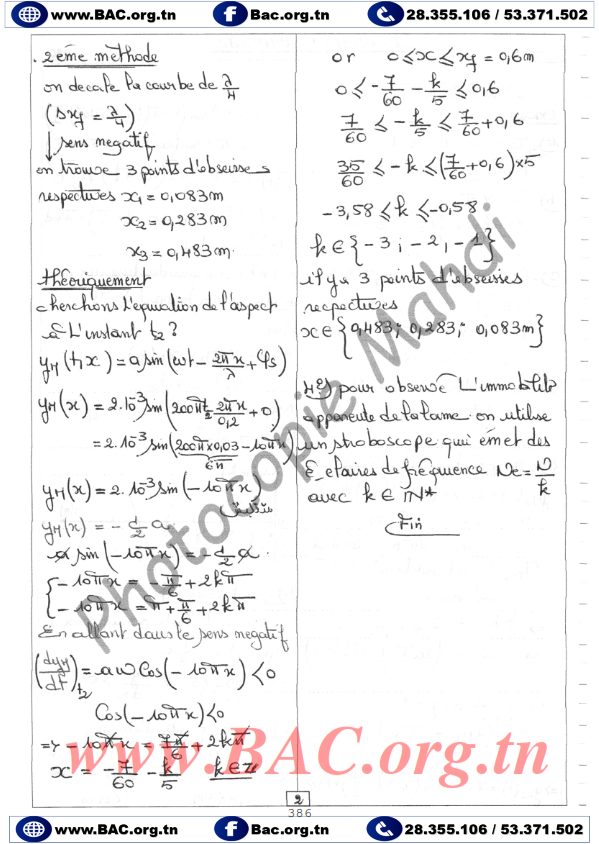 www.BAC.org.tn Bac.org.tn 28.355.106 / 53.371.502
. 2ème méthode
on decale la courbe de λ/4
(Δxf = λ/4)
↓ sens negatif
on trouve 3 points d'obscisses
respectives x1 = 0,083m
x2 = 0,283m
x3 = 0,483m.
théoriquement
cherchons L'equation de l'aspect
à L'instant t2 ?
yM(t,x) = a sin(ωt - 2πx/λ + φs)
yM(x) = 2.10-3 sin(200πt2 - 2πx/0,2 + 0)
= 2.10-3 sin(200π x 0,03 - 10πx)
6π
yM(x) = 2.10-3 sin(-10πx)
yM(x) = - 1/2 a
a sin(-10πx) = - 1/2 a.
{ -10πx = -π/6 + 2kπ
-10πx = π + π/6 + 2kπ
En allant dans le sens negatif
(dyM/dt)t2 = aω Cos(-10πx) < 0
Cos(-10πx) < 0
=> -10πx = 7π/6 + 2kπ
x = -7/60 - k/5 k ∈ Z
or 0 ⩽ x ⩽ xf = 0,6m
0 ⩽ -7/60 - k/5 ⩽ 0,6
7/60 ⩽ -k/5 ⩽ 7/60 + 0,6
35/60 ⩽ -k ⩽ (7/60 + 0,6) x 5
-3,58 ⩽ k ⩽ -0,58
k ∈ {-3 ; -2 ; -1}
il y a 3 points d'obscisses
respectives
x ∈ {0,483 ; 0,283 ; 0,083m}
4°) pour observé L'immobilité
apparente de la lame on utilise
un stroboscope qui émet des
Eclaires de fréquence Ne = N/k
avec k ∈ IN*
Fin
Photocopie Mahdi
www.BAC.org.tn
2
386
www.BAC.org.tn Bac.org.tn 28.355.106 / 53.371.502